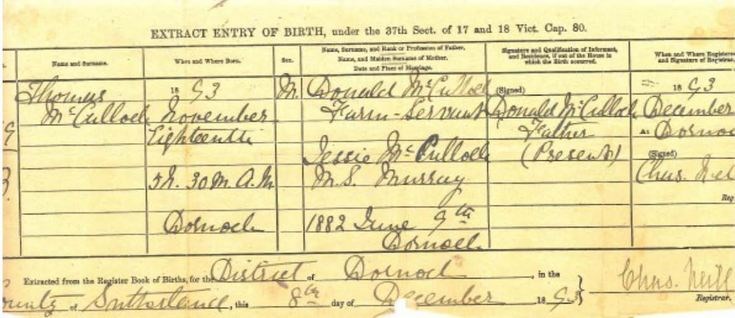 EXTRACT ENTRY OF BIRTH, under the 37th Sect. of 17 and 18 Vict. Cap. 80.
Name and Surname.
When and Where Born.
Sex.
Name, Surname, and Rank or Profession of Father.
Name, and Maiden Surname of Mother.
Date and Place of Marriage.
Signature and Qualification of Informant,
and Residence, if out of the House in
which the Birth occurred.
When and Where Registered
and Signature of Registrar.
Thomas
McCulloch
1893
November
Eighteenth
5h. 30m. A.M.
Dornoch
M.
Donald McCulloch
Farm-Servant
Jessie McCulloch
M.S. Murray
1882 June 9th
Dornoch
(Signed)
Donald McCulloch
Father
(Present)
1893
December
At Dornoch
(Signed)
Chas. Neill
Reg
Extracted from the Register Book of Births, for the District of Dornoch, in the
County of Sutherland, this 8th day of December 1893
Chas. Neill
Registrar.